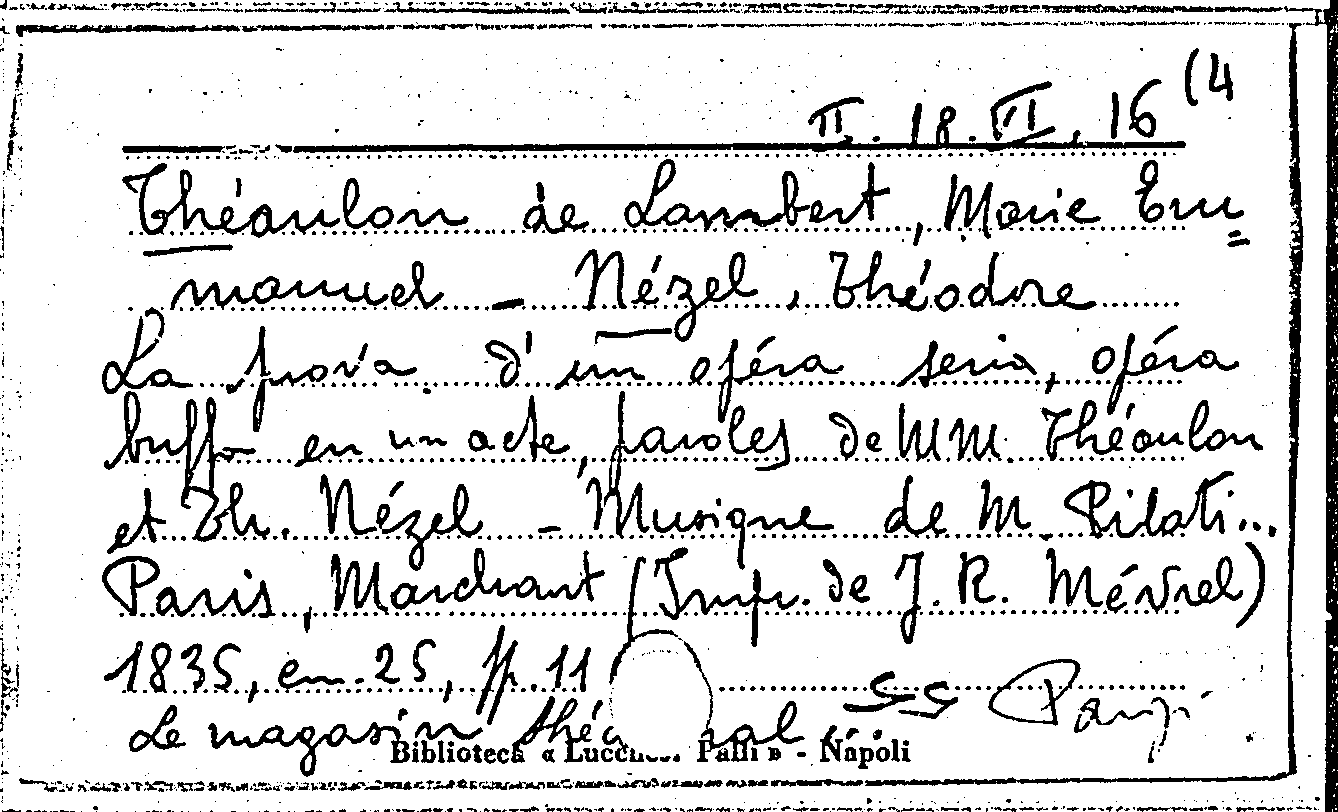 II. 18. VI. 16 (4
Théaulon de Lambert, Marie Em=
manuel – Nézel, Théodore
La prova d'un opéra seria, opéra
buffa en un acte, paroles de MM. Théaulon
et Th. Nézel – Musique de M. Pilati...
Paris, Marchant (Impr. de J. R. Mévrel)
1835, cm. 25, pp. 11
Le magasin
Biblioteca « Palli » - Napoli